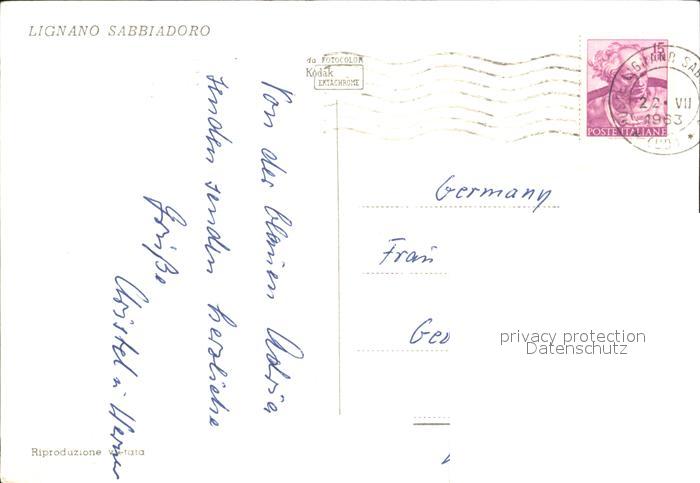 LIGNANO SABBIADORO
da FOTOCOLOR
Kodak
EKTACHROME
15
22 VII
1963
(UD) *
POSTE ITALIANE
Von der blauen Adria
senden senden herzliche
Grüße
Christel u Werner
Germany
Frau
Geo
privacy protection
Datenschutz
Riproduzione vietata